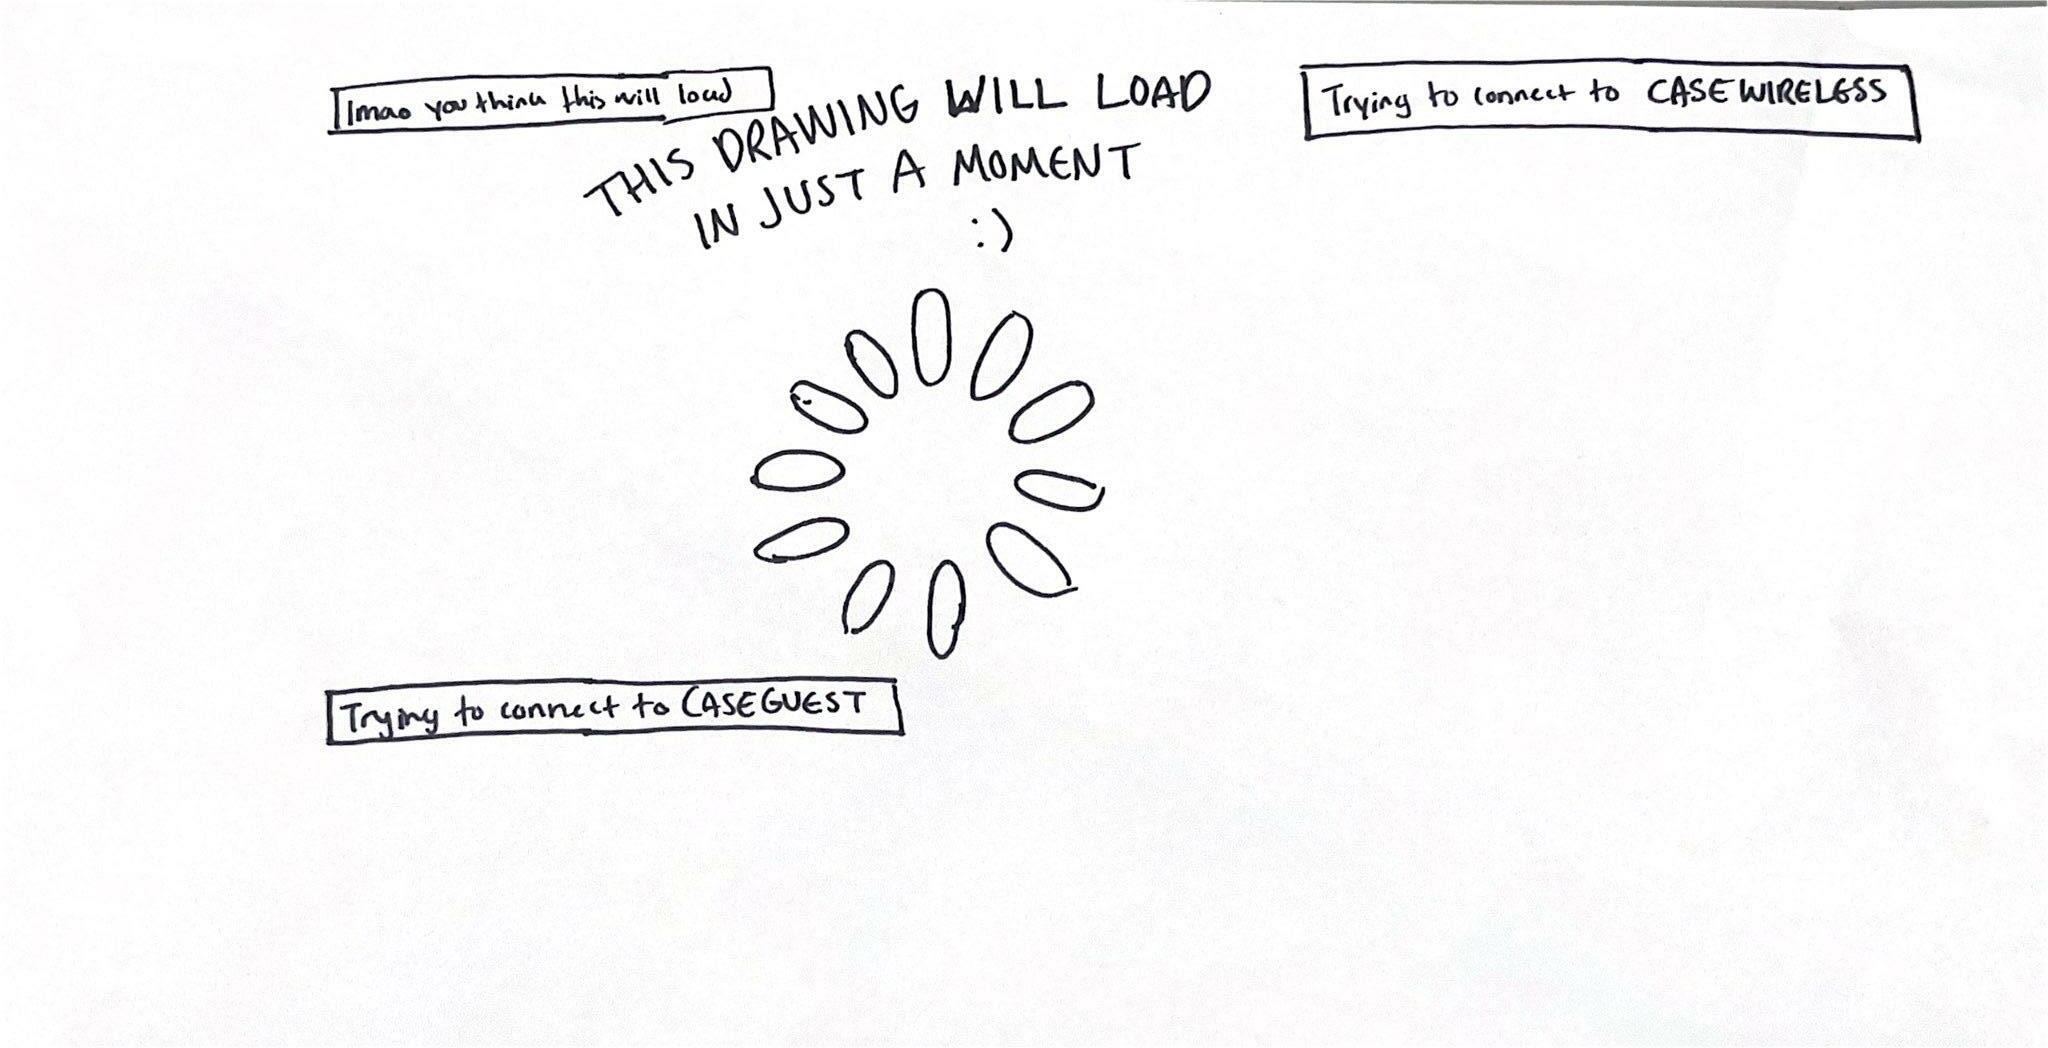 lmao you think this will load
THIS DRAWING WILL LOAD
IN JUST A MOMENT
:)
Trying to connect to CASEWIRELESS
Trying to connect to CASEGUEST